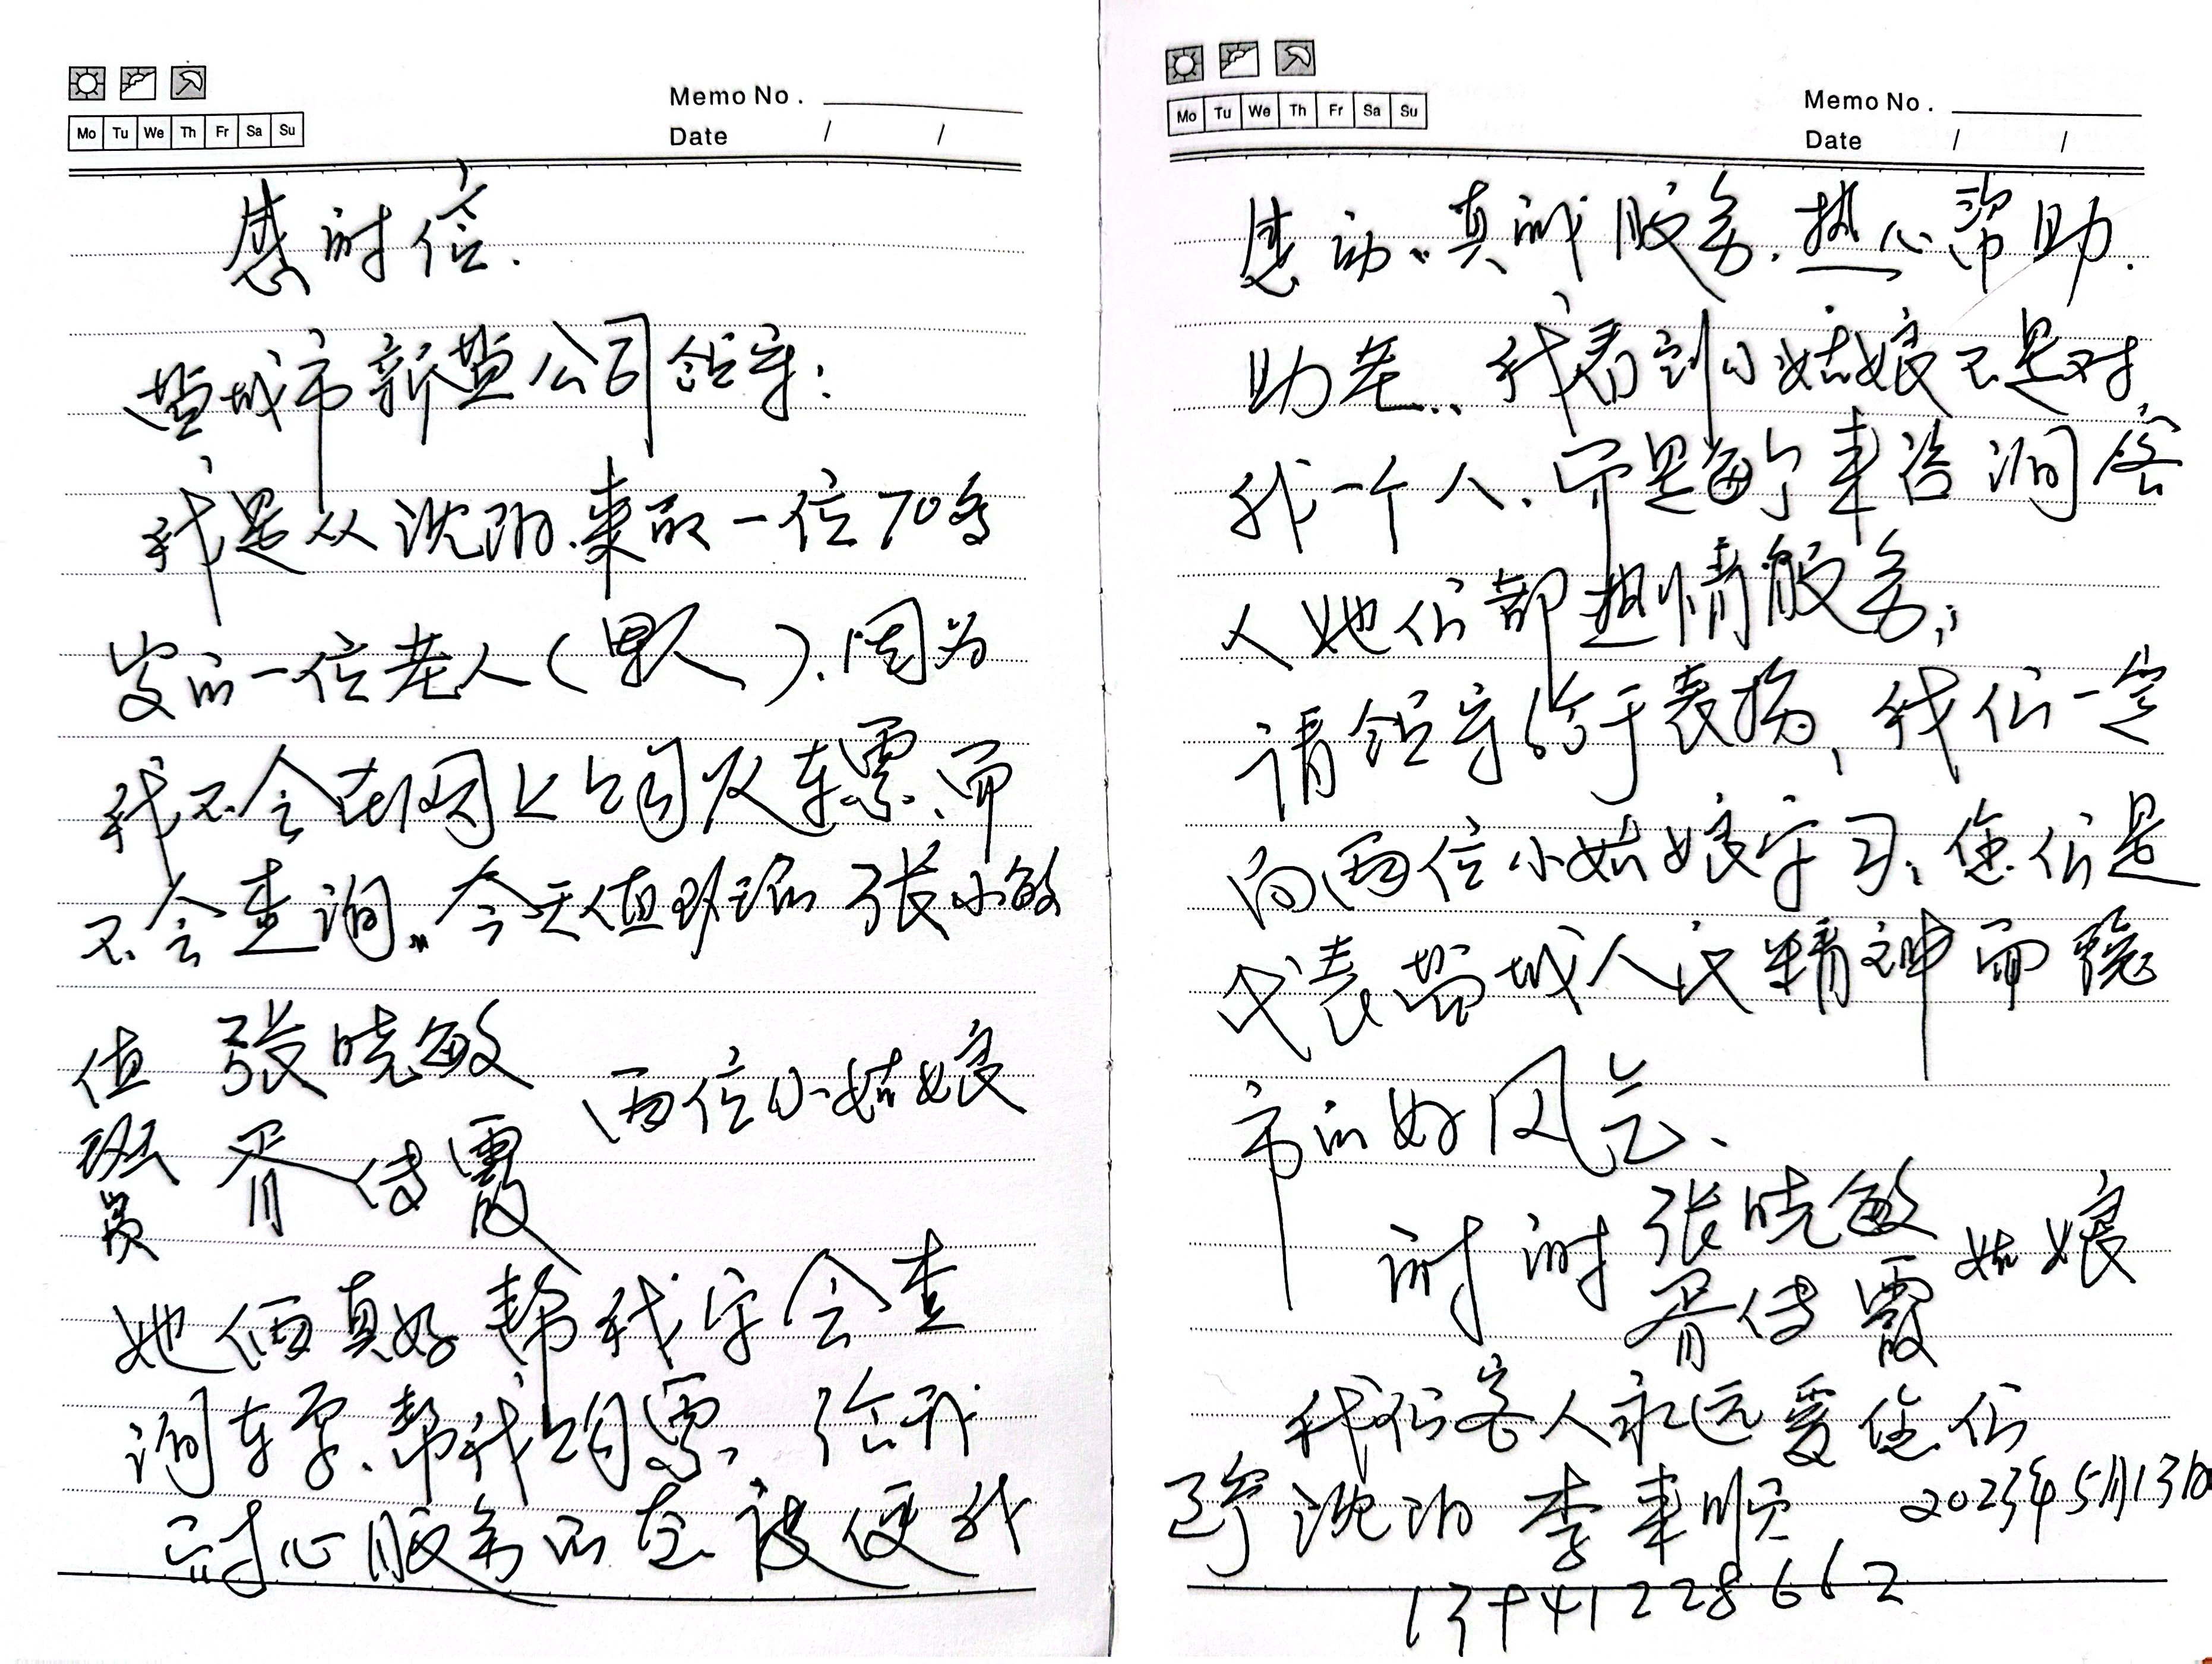 Memo No.
Mo Tu We Th Fr Sa Su
Date / /
感谢信.
盐城市新盐公司领导:
我是从沈阳.来的一位70多
岁的一位老人(男人).因为
我不会在网上购火车票、而
不会查询,,今天值班班 张小敏
值班员 张晓敏 两位小姑娘
胥传霞
她俩真好帮我学会查
询车票、帮我购票、给我
耐心服务 便我
Memo No.
Mo Tu We Th Fr Sa Su
Date / /
感动、真诚服务.热心帮助.
助老..、我看到小姑娘不是对
我一个人、而是每个来咨询客
人她们都热情服务;
请领导给于表扬,我们一定
向两位小姑娘学习、您们是
代表盐城人民精神面貌
市的好风气.
谢谢 张晓敏 姑娘
胥传霞
我们客人永远爱您们
辽宁沈阳 李来顺 2023年5月13日
13941228662